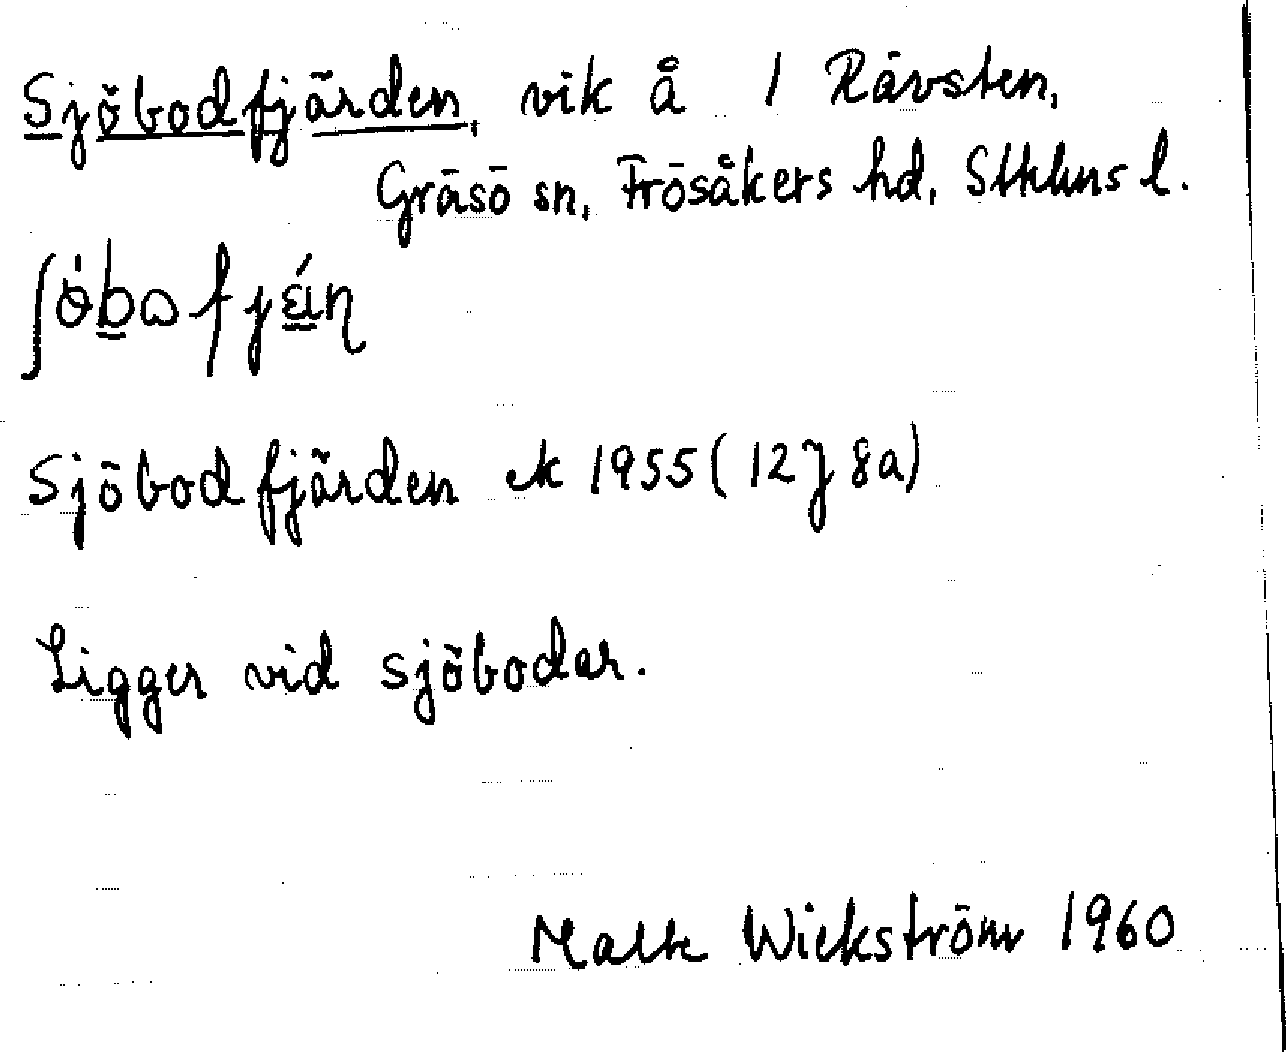 Sjöbodfjärden, vik å 1 Rävsten,
Gräsö sn, Frösåkers hd, Sthlms l.
Sjöbodfjärden ek 1955 (12J 8a)
Ligger vid sjöbodar.
Malte Wickström 1960